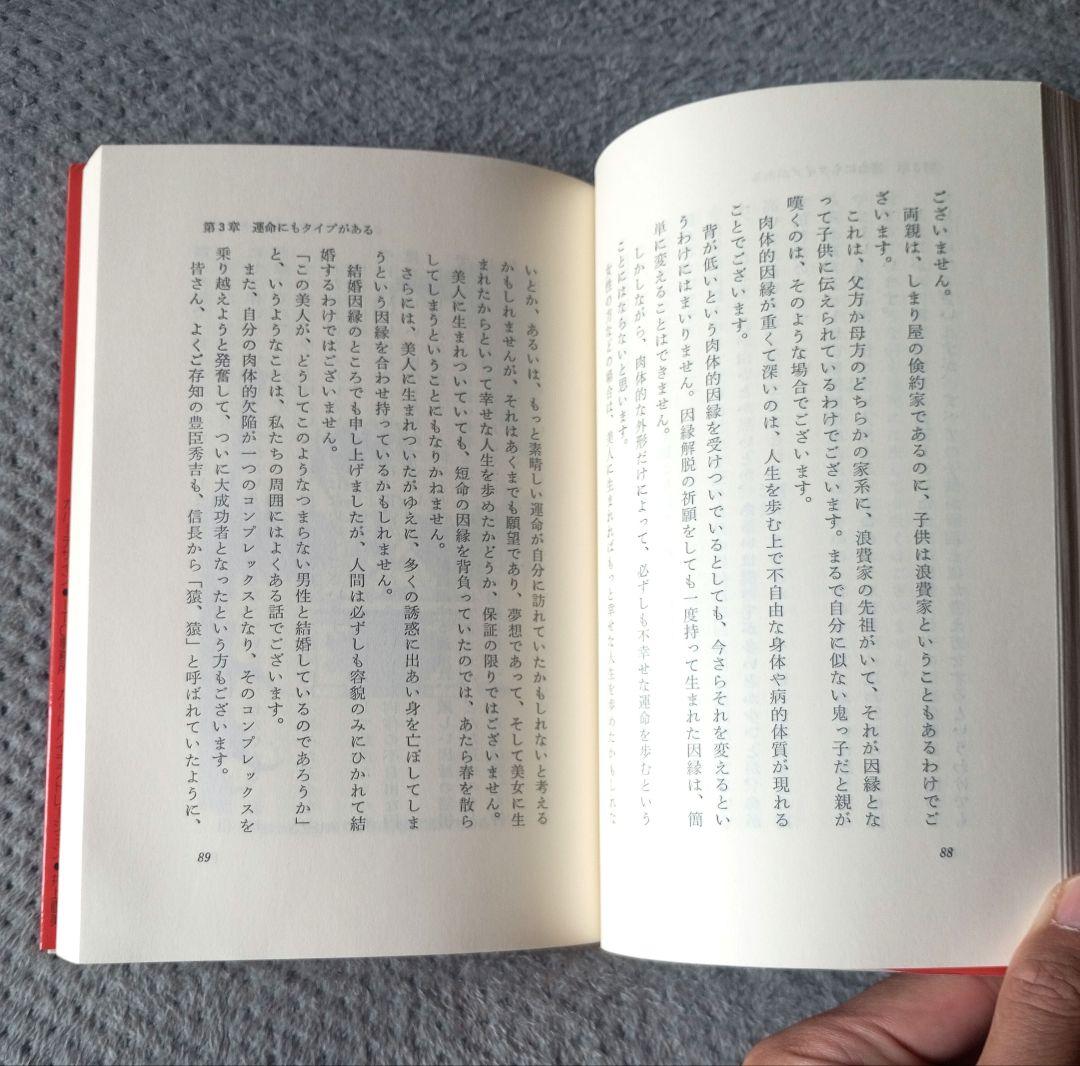 ございません。
両親は、しまり屋の倹約家であるのに、子供は浪費家ということもあるわけでご
ざいます。
これは、父方か母方のどちらかの家系に、浪費家の先祖がいて、それが因縁とな
って子供に伝えられているわけでございます。まるで自分に似ない鬼っ子だと親が
嘆くのは、そのような場合でございます。
肉体的因縁が重くて深いのは、人生を歩む上で不自由な身体や病的体質が現れる
ことでございます。
背が低いという肉体的因縁を受けついでいるとしても、今さらそれを変えるとい
うわけにはまいりません。因縁解脱の祈願をしても一度持って生まれた因縁は、簡
単に変えることはできません。
しかしながら、肉体的な外形だけによって、必ずしも不幸せな運命を歩むという
ことにはならないと思います。
女性の方などの場合は、美人に生まれればもっと幸せな人生を歩めたかもしれな
88
第3章 運命にもタイプがある
いとか、あるいは、もっと素晴しい運命が自分に訪れていたかもしれないと考える
かもしれませんが、それはあくまでも願望であり、夢想であって、そして美女に生
まれたからといって幸せな人生を歩めたかどうか、保証の限りではございません。
美人に生まれついていても、短命の因縁を背負っていたのでは、あたら春を散ら
してしまうということにもなりかねません。
さらには、美人に生まれついたがゆえに、多くの誘惑に出あい身を亡ぼしてしま
うという因縁を合わせ持っているかもしれません。
結婚因縁のところでも申し上げましたが、人間は必ずしも容貌のみにひかれて結
婚するわけではございません。
「この美人が、どうしてこのようなつまらない男性と結婚しているのであろうか」
と、いうようなことは、私たちの周囲にはよくある話でございます。
また、自分の肉体的欠陥が一つのコンプレックスとなり、そのコンプレックスを
乗り越えようと発奮して、ついに大成功者となったという方もございます。
皆さん、よくご存知の豊臣秀吉も、信長から「猿、猿」と呼ばれていたように、
89